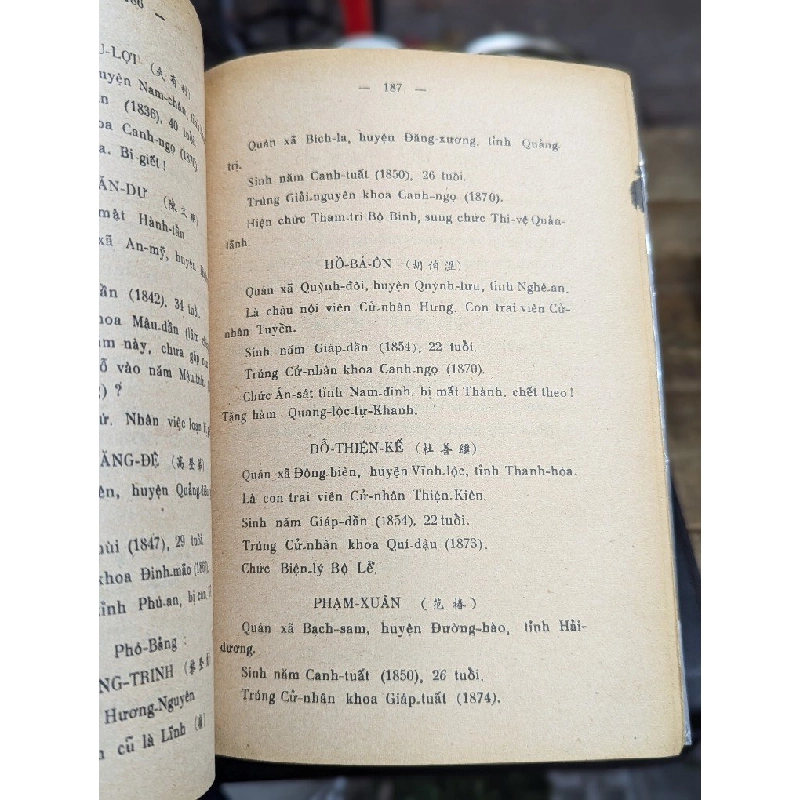 186 —
U-LỢI (武有利)
uyện Nam-chân
(1836), 40
oa Canh-ngọ (1870)
a. Bị giết !
ĂN-DƯ
mật Hành-tẩn
xã An-mỹ, huyện
ần (1842), 34 tuổi.
hoa Mậu-dần
ăm này, chưa
ỗ vào năm
) ?
ứ. Nhân việc loạn
ĂNG-ĐỆ (高登第)
ên, huyện Quảng
ùi (1847), 29 tuổi
khoa Đinh-mão
tỉnh Phú-an, bị
Phó-Bảng :
NG-TRINH
Hương-Nguyên
n cũ là Lĩnh
— 187 —
Quán xã Bích-la, huyện Đăng-xương, tỉnh Quảng-
trị.
Sinh năm Canh-tuất (1850), 26 tuổi.
Trúng Giải-nguyên khoa Canh-ngọ (1870).
Hiện chức Tham-tri Bộ Binh, sung chức Thị-vệ Quản-
lãnh
HỒ-BÁ-ÔN (胡伯温)
Quán xã Quỳnh-đôi, huyện Quỳnh-lưu, tỉnh Nghệ-an.
Là cháu nội viên Cử-nhân Hưng. Con trai viên Cử-
nhân Tuyển.
Sinh năm Giáp-dần (1854), 22 tuổi.
Trúng Cử-nhân khoa Canh-ngọ (1870).
Chức Án-sát tỉnh Nam-định, bị mất Thành, chết theo !
Tặng hàm Quang-lộc-tự-Khanh.
ĐỖ-THIỆN-KẾ (杜善繼)
Quán xã Đông-biên, huyện Vĩnh-lộc, tỉnh Thanh-hóa.
Là con trai viên Cử-nhân Thiện-Kiên.
Sinh năm Giáp-dần (1854), 22 tuổi.
Trúng Cử-nhân khoa Quí-dậu (1873).
Chức Biện-lý Bộ Lễ.
PHẠM-XUÂN (范椿)
Quán xã Bạch-sam, huyện Đường-hào, tỉnh Hải-
dương.
Sinh năm Canh-tuất (1850), 26 tuổi.
Trúng Cử-nhân khoa Giáp-tuất (1874).